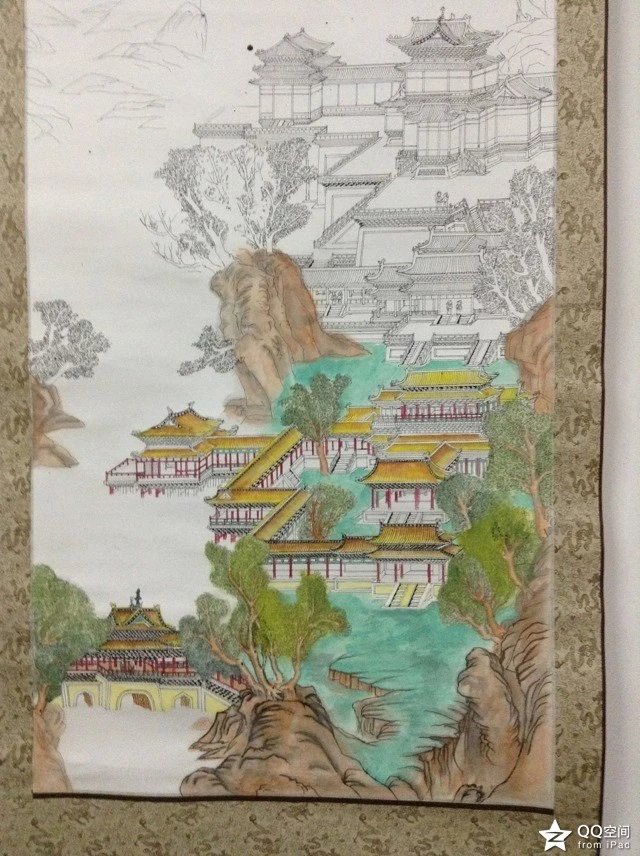 QQ空间
from iPad